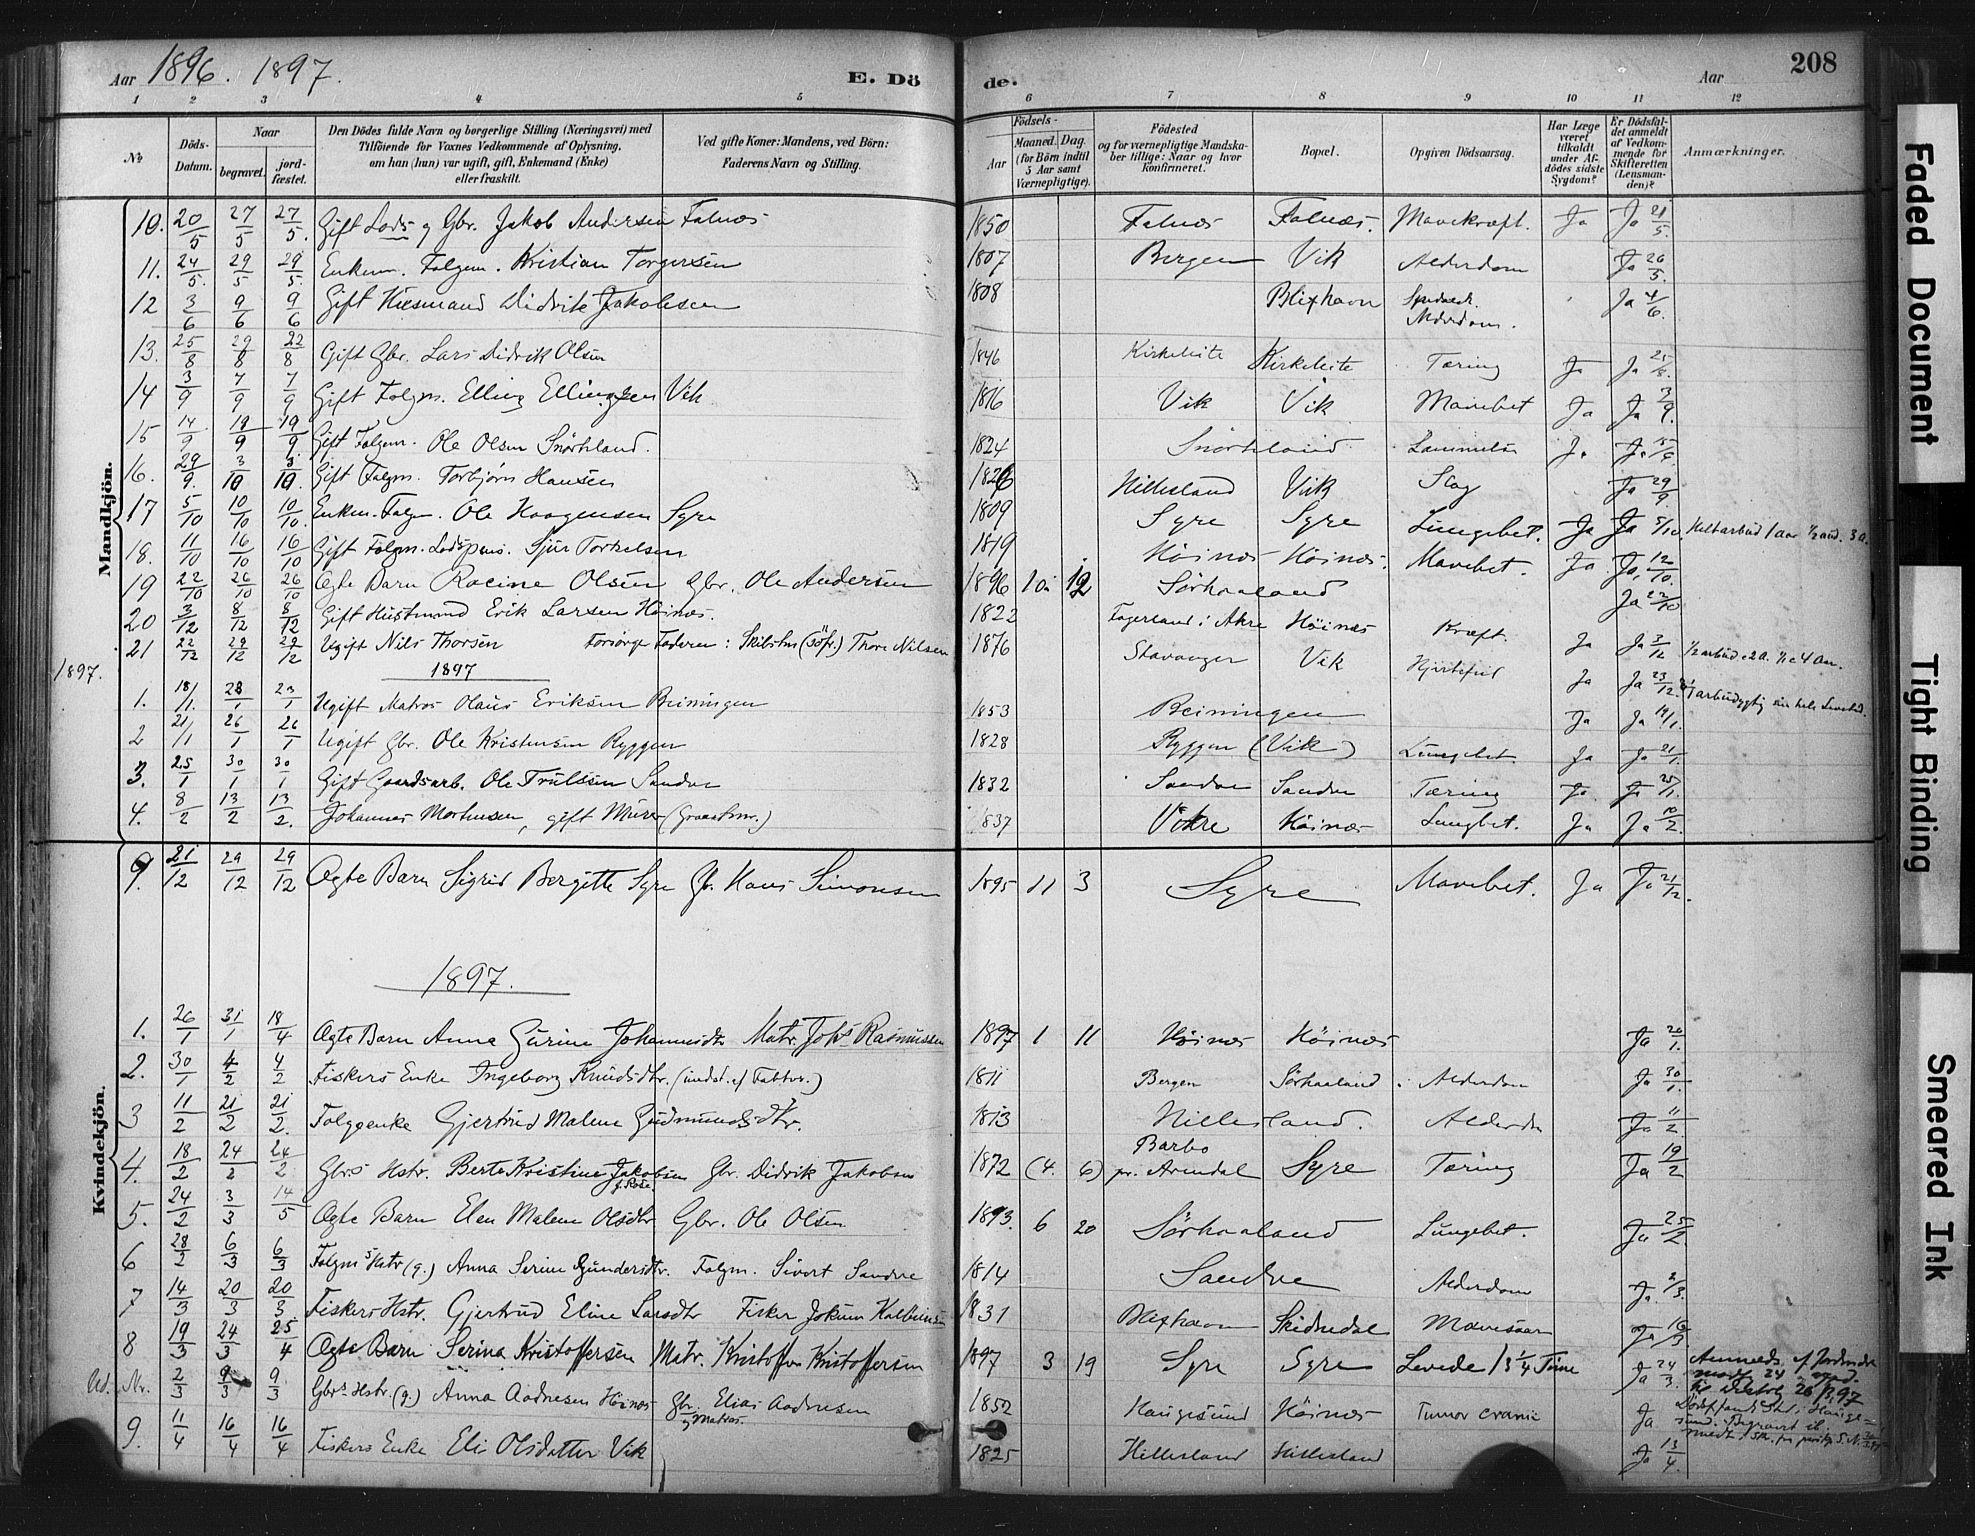 Aar 1896. 1897.
E. Dö
de.
Aar
208
1 2 3 4 5 6 7 8 9 10 11 12
№
Döds-Datum.
Naar
begravet.
jord-fæstet.
Den Dödes fulde Navn og borgerlige Stilling (Næringsvei) med
Tilföiende for Voxnes Vedkommende af Oplysning,
om han (hun) var ugift, gift, Enkemand (Enke)
eller fraskilt.
Ved gifte Koner: Mandens, ved Börn:
Faderens Navn og Stilling.
Födsels-
Aar
Maaned. Dag.
(for Börn indtil
5 Aar samt
Værnepligtige).
Födested
og for værnepligtige Mandska-
ber tillige: Naar og hvor
konfirmeret.
Bopæl.
Opgiven Dödsaarsag.
Har Læge
været
tilkaldt
under Af-
dödes sidste
Sygdom?
Er Dödsfal-
det anmeldt
af Vedkom-
mende for
Skifteretten
(Lensman-
den)?
Anmærkninger.
Mandkjön.
10. 20/5 27/5 27/5. Gift Lods og Gbr. Jakob Andersen Falnæs 1850 Falnæs Falnæs. Mavekræft. Ja Ja 21/5.
11. 24/5. 29/5 29/5. Enkem. Folgem. Kristian Torgersen 1807 Bergen Vik Alderdom Ja 26/5.
12 3/6 9/6 9/6 Gift Husmand Didrik Jakobsen 1808 Blixhavn Alderdom. Ja 4/6.
13. 25/8 29/8 22/8 Gift Gbr. Lars Didrik Olsen 1846 Kirkeleite Kirkeleite Tæring Ja Ja
14 3/9 7/9 7/9 Gift Folgm. Elling Ellingsen Vik 1816 Vik Vik Mavebet Ja Ja 3/9.
15 14/9 19/9 Gift Folgem. Ole Olsen 1824 Ja Ja
16. 29/9. 3/10 3/10. Gift Folgm. Torbjörn Hansen 1826 Hillesland Vik Slag Ja 29/9.
17 5/10 10/10 10/10. Enkem. Folgm. Ole Haagensen Syre 1809 Syre Syre Lungebet. Ja Ja 5/10
18. 11/10 16/10 16/10 Gift Folgm. Lodspens. Sjur Torkelsen 1819 Höinæs Höinæs. Mavebet. Ja Ja 12/10.
19 22/10 26/10 26/10 Ægte Barn Racine Olsen Gbr. Ole Andersen 1896 10 12 Sörhaaland Ja 22/10
20 3/12 8/12 8/12 Gift Husmand Erik Larsen Höinæs. 1822 Fagerland i Akre Höinæs Kræft. Ja Ja 3/12
21 22/12 29/12 29/12 Ugift Nils Thorsen Forsörge Faderen: Thore Nilsen 1876 Stavanger Vik Hjertefeil Ja Ja 23/12.
1897.
1897
1. 18/1. 23/1 23/1 Ugift Matros Olaus Eriksen Beiningen 1853 Beiningen Ja Ja 19/1.
2 21/1 26/1 26/1 Ugift Gbr. Ole Kristensen Ryggen 1828 Ryggen (Vik) Lungebet. Ja Ja 21/1.
3. 25/1 30/1 30/1 Gift Gaardsarb. Ole Trulssen Sandve 1832 Sandve Sandve Tæring Ja. Ja 25/1.
4. 8/2 13/2 13/2. Johannes Mortensen, gift Murer 1837 Vikre Höinæs Lungbet. Ja Ja 10/2.
Kvindekjön.
9. 21/12 29/12 29/12 Ægte Barn Sigrid Bergitte Syre Gbr. Hans Simonsen 1895 11 3 Syre Mavebet. Ja Ja 21/12.
1897.
1. 26/1 31/1 18/4 Ægte Barn Anna Gurine Johannesdtr Matr. Johs Rasmussen 1897 1 11 Höinæs Höinæs Ja 26/1.
2. 30/1 4/2 4/2 Fiskers Enke Ingeborg Knudsdtr. (underst. af Fattigv.) 1811 Bergen Sörhaaland Alderdom Ja 30/1.
3 11/2 21/2 21/2. Folggenke Gjertrud Malene Gudmundsdtr. 1813 Hillesland. Alderdom Ja 11/2.
4. 18/2 24/2 24/2 Gbrs Hstr. Berte Kristine Jakobsen Gbr. Didrik Jakobsen 1872 (4. 6) Barbo pr. Arendal Syre Tæring Ja 19/2
5. 24/2 3/3 14/5 Ægte Barn Elen Malene Olsdtr Gbr. Ole Olsen 1893. 6 20 Sörhaaland Lungebet. Ja 25/2
6 28/2 6/3 6/3 Folgms Hstr (g.) Anna Serine Gundersdtr. Folgm. Sivert Sandve 1814 Sandve Alderdom Ja 2/3.
7 14/3 20/3 20/3 Fiskers Hstr. Gjertrud Eline Larsdtr Fisker Jokum 1831 Blixhavn Skidnedal Mavesaar Ja 16/3
8 19/3 24/3 25/4 Ægte Barn Serina Kristoffersen Matr. Kristoffer Kristoffersen 1897 3 19 Syre Syre Levede 13 1/4 Time Ja 24/3.
Ud. Nr. 2/3 9/3 9/3 Gbrs Hstr. (g.) Anna Aadnesen Höinæs Gbr. og Matros. Elias Aadnesen 1852 Haugesund Höinæs Tumor cranii Ja
9. 11/4 16/4 16/4 Fiskers Enke Eli Olsdatter Vik 1825 Hillesland Hillesland Ja 13/4.
Faded Document
Tight Binding
Smeared Ink